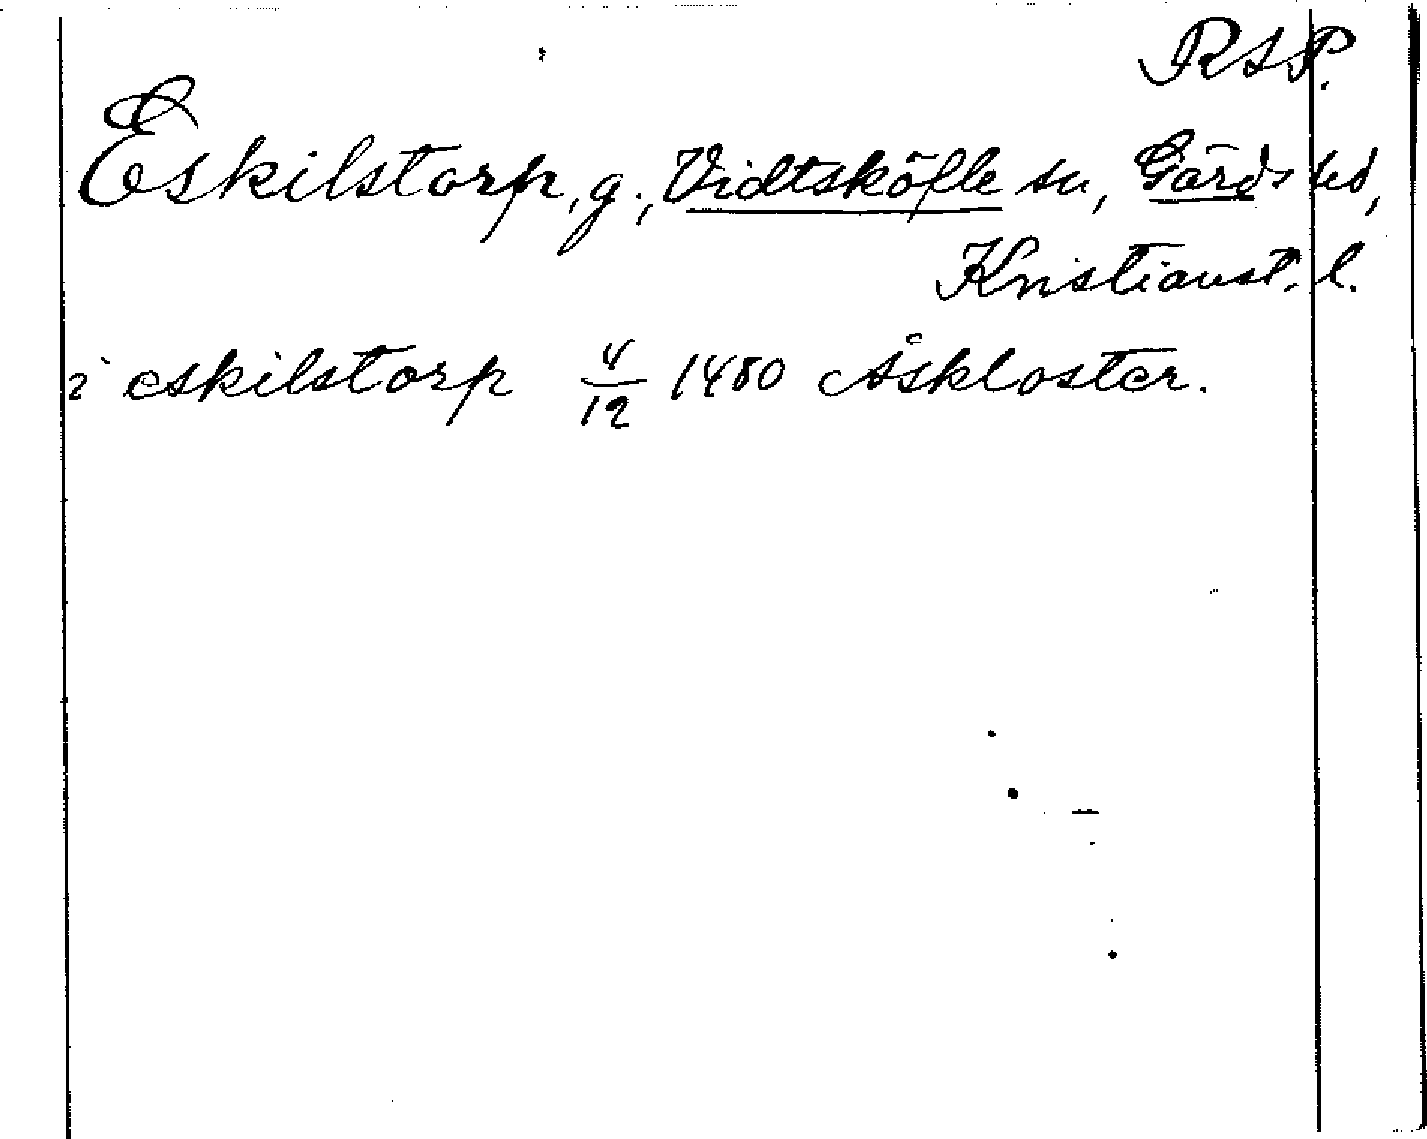 RSP.
Eskilstorp, g., Vidtsköfle sn, Gärds hd,
Kristianst. l.
i eskilstorp 4/12 1480 Åskloster.